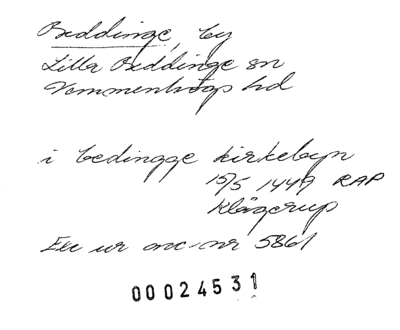 Beddinge, by
Lilla Beddinge sn
Vemmenhögs hd
i bedingge kirkebyn
15/5 1449 RAP
Klågerup
Exc ur acc-nr 5861
00024531